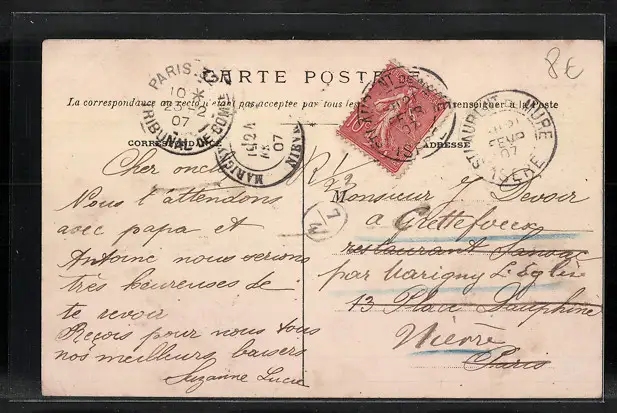 8€
CARTE POSTALE
La correspondance au recto n'étant pas acceptée par tous les
renseigner à la Poste
PARIS
10
07
TRIBUNAL DE COMMERCE
MARIGNY
07
ST LAURENT DU MURE
FEVR
07
ISÈRE
CORRESPONDANCE
ADRESSE
Cher oncle
Nous t'attendons
avec papa et
Antoine nous serions
très heureuses de
te revoir
Reçois pour nous tous
nos meilleurs baisers
Suzanne Lucie
Monsieur Devoir
à
restaurant
par Marigny L'Eglise
13 Place Dauphine
Nièvre
Paris